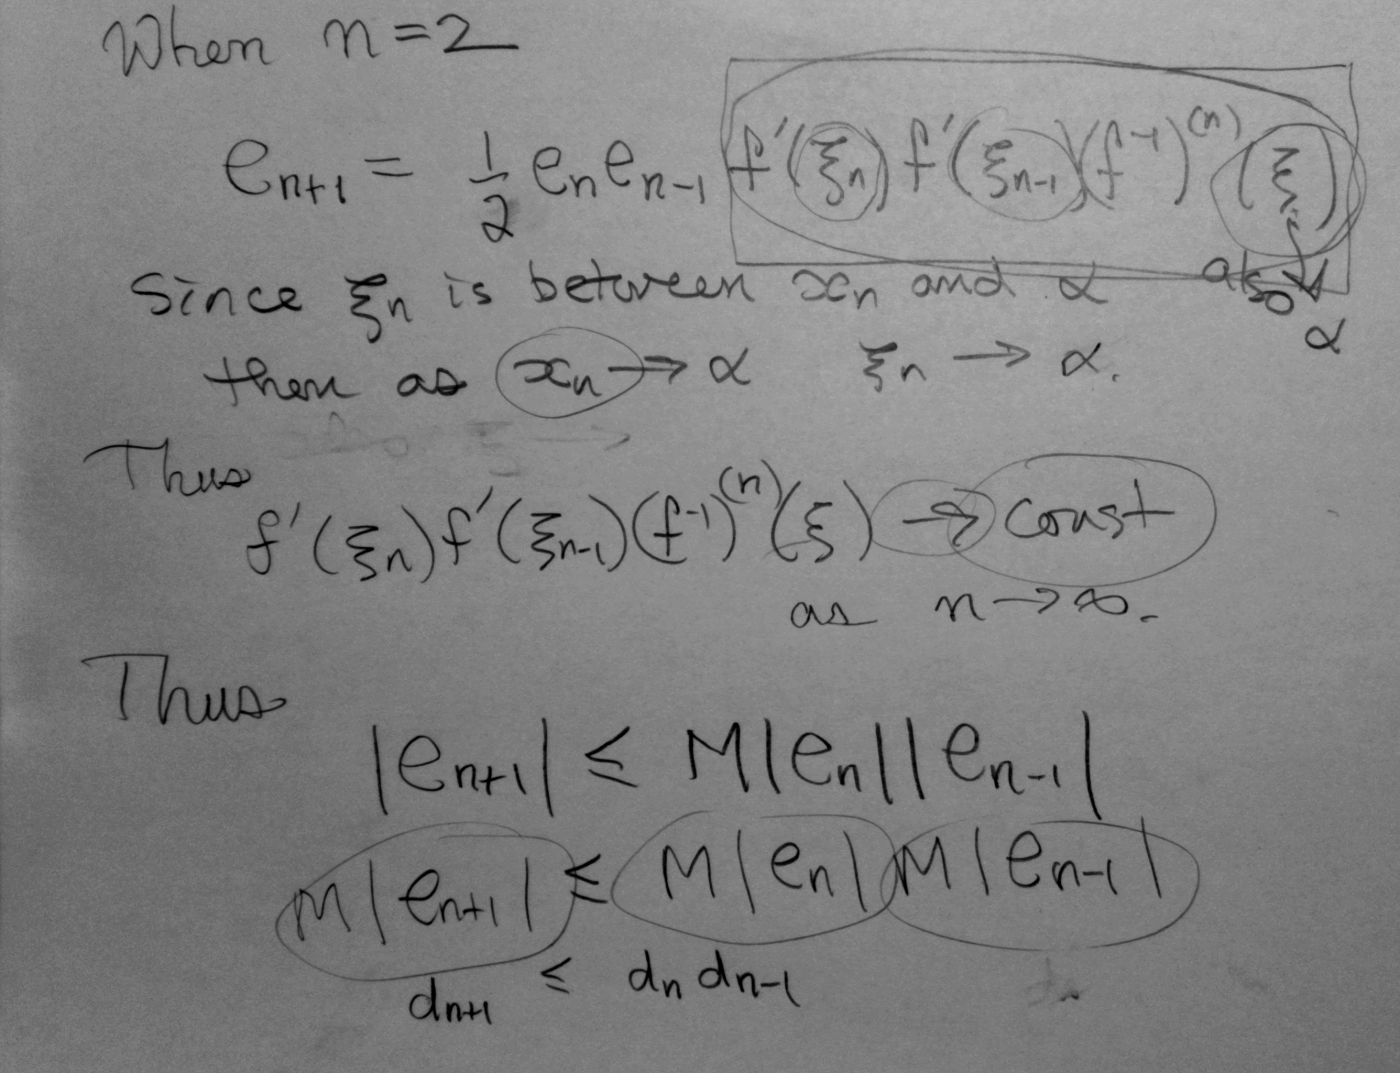 When n=2
e_{n+1} = \frac{1}{2} e_n e_{n-1} f'(ξ_n) f'(ξ_{n-1}) (f^{-1})^{(n)} (ξ)
Since ξ_n is between x_n and α also ↓ α
then as x_n → α ξ_n → α.
Thus
f'(ξ_n) f'(ξ_{n-1}) (f^{-1})^{(n)} (ξ) → const
as n → ∞.
Thus
|e_{n+1}| ≤ M|e_n||e_{n-1}|
M|e_{n+1}| ≤ M|e_n| M|e_{n-1}|
d_{n+1} ≤ d_n d_{n-1}